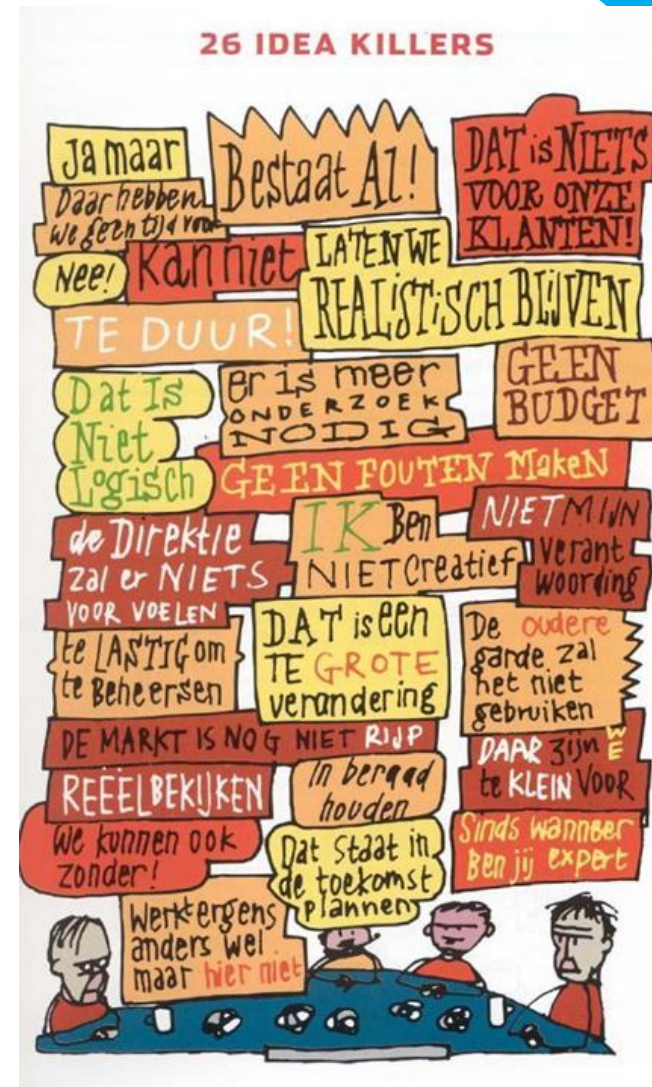 26 IDEA KILLERS
Ja maar
Bestaat Al!
DAT is NIETS
VOOR ONZE
KLANTEN!
Daar hebben
we geen tijd voor
Nee!
Kan niet
LATEN WE
REALISTISCH BLIJVEN
TE DUUR!
GEEN
BUDGET
Dat Is
Niet
Logisch
er is meer
ONDERZOEK
NODIG
GEEN FOUTEN MaKeN
de Direktie
zal er NIETS
VOOR VOELEN
IK Ben
NIET Creatief
NIET MIJN
verant
woording
te LASTIG om
te Beheersen
DAT is een
TE GROTE
verandering
De oudere
garde zal
het niet
gebruiken
DE MARKT IS NOG NIET RIJP
DAAR zijn WE
te KLEIN VOOR
REËEL BEKIJKEN
In beraad
houden
We kunnen ook
zonder!
Dat staat in
de toekomst
plannen
Sinds wanneer
Ben jij expert
Werkt ergens
anders wel
maar hier niet